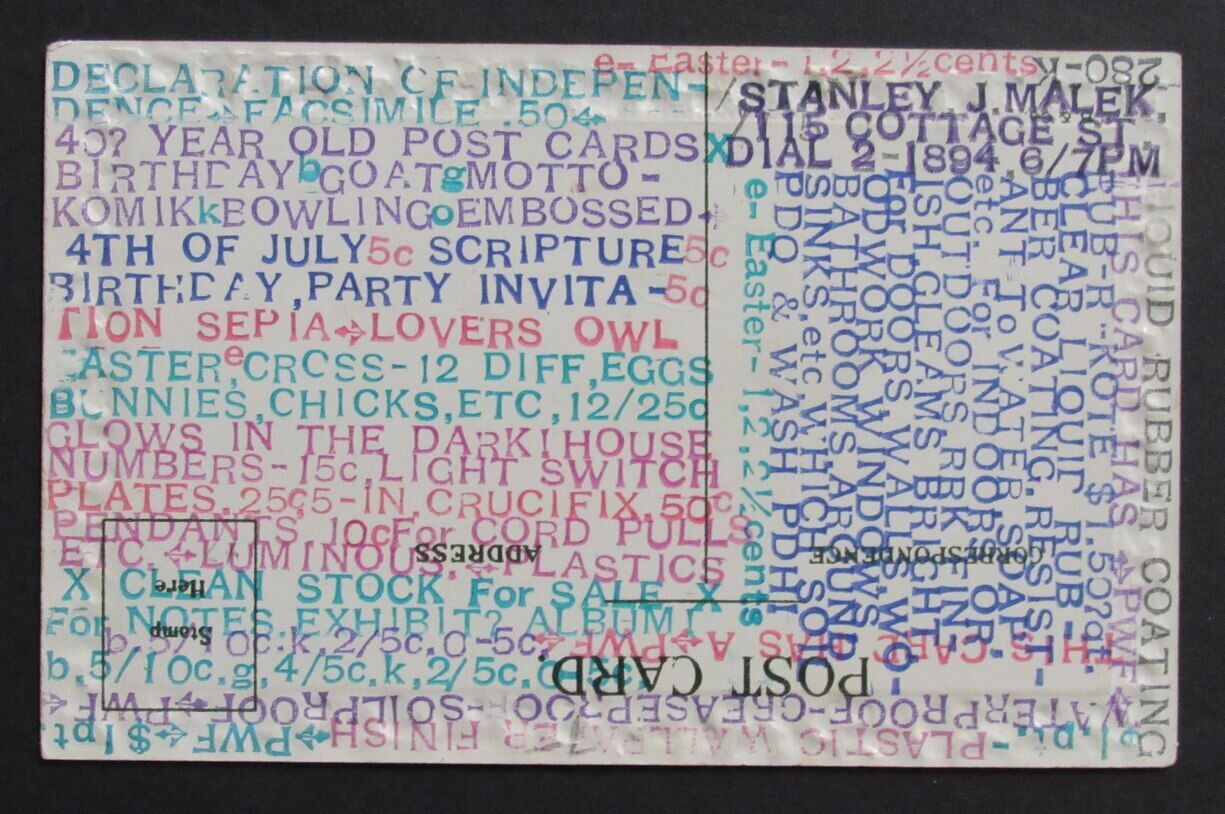 e- Easter- 1,2,2½cents
280-K
DECLARATION OF INDEPEN-
DENCE FACSIMILE .50
/STANLEY J.MALEK,
/115 COTTAGE ST,
DIAL 2-1894,6/7PM
40? YEAR OLD POST CARDS X
BIRTHDAY b GOAT g MOTTO-
KOMIK k BOWLING o EMBOSSED
4TH OF JULY 5c SCRIPTURE 5c
BIRTHDAY,PARTY INVITA-5c
TION SEPIA LOVERS OWL
EASTER e,CROSS-12 DIFF,EGGS
BUNNIES,CHICKS,ETC,12/25c
GLOWS IN THE DARK! HOUSE
NUMBERS-15c,LIGHT SWITCH
PLATES.25c5-IN.CRUCIFIX.50c
PENDANTS 10cFor CORD PULLS
ETC. LUMINOUS. PLASTICS
X CLEAN STOCK For SALE X
For NOTES.EXHIBIT? ALBUM!
b.5/10c.k.2/5c.0-5c
b,5/10c.g,4/5c,k,2/5c.
LIQUID RUBBER COATING
THIS CARD HAS PWF
PUB-R "KOTE $1.50?qt.
CLEAR LIQUID RUB-
BER COATING.RESIST-
ANT To WATER SOAP
etc. For INDOOR OR-
OUTDOORS.RBK FIN-
ISH GLEAMS BRIGHT
For DOORS,WALLS,WO-
OD WORK,WINDOWS
BATHROOMS.AROUND
SINKS,etc,WHICH SOD
PDO & WASH PDHI
e- Easter- 1,2,2½cents
THIS CARD HAS A PWF
POST CARD.
CORRESPONDENCE
ADDRESS
Stamp
Here
WATERPROOF-GREASEPROOF-SOILPROOF PWF
-PLASTIC WALLPAPER FINISH PWF $1pt